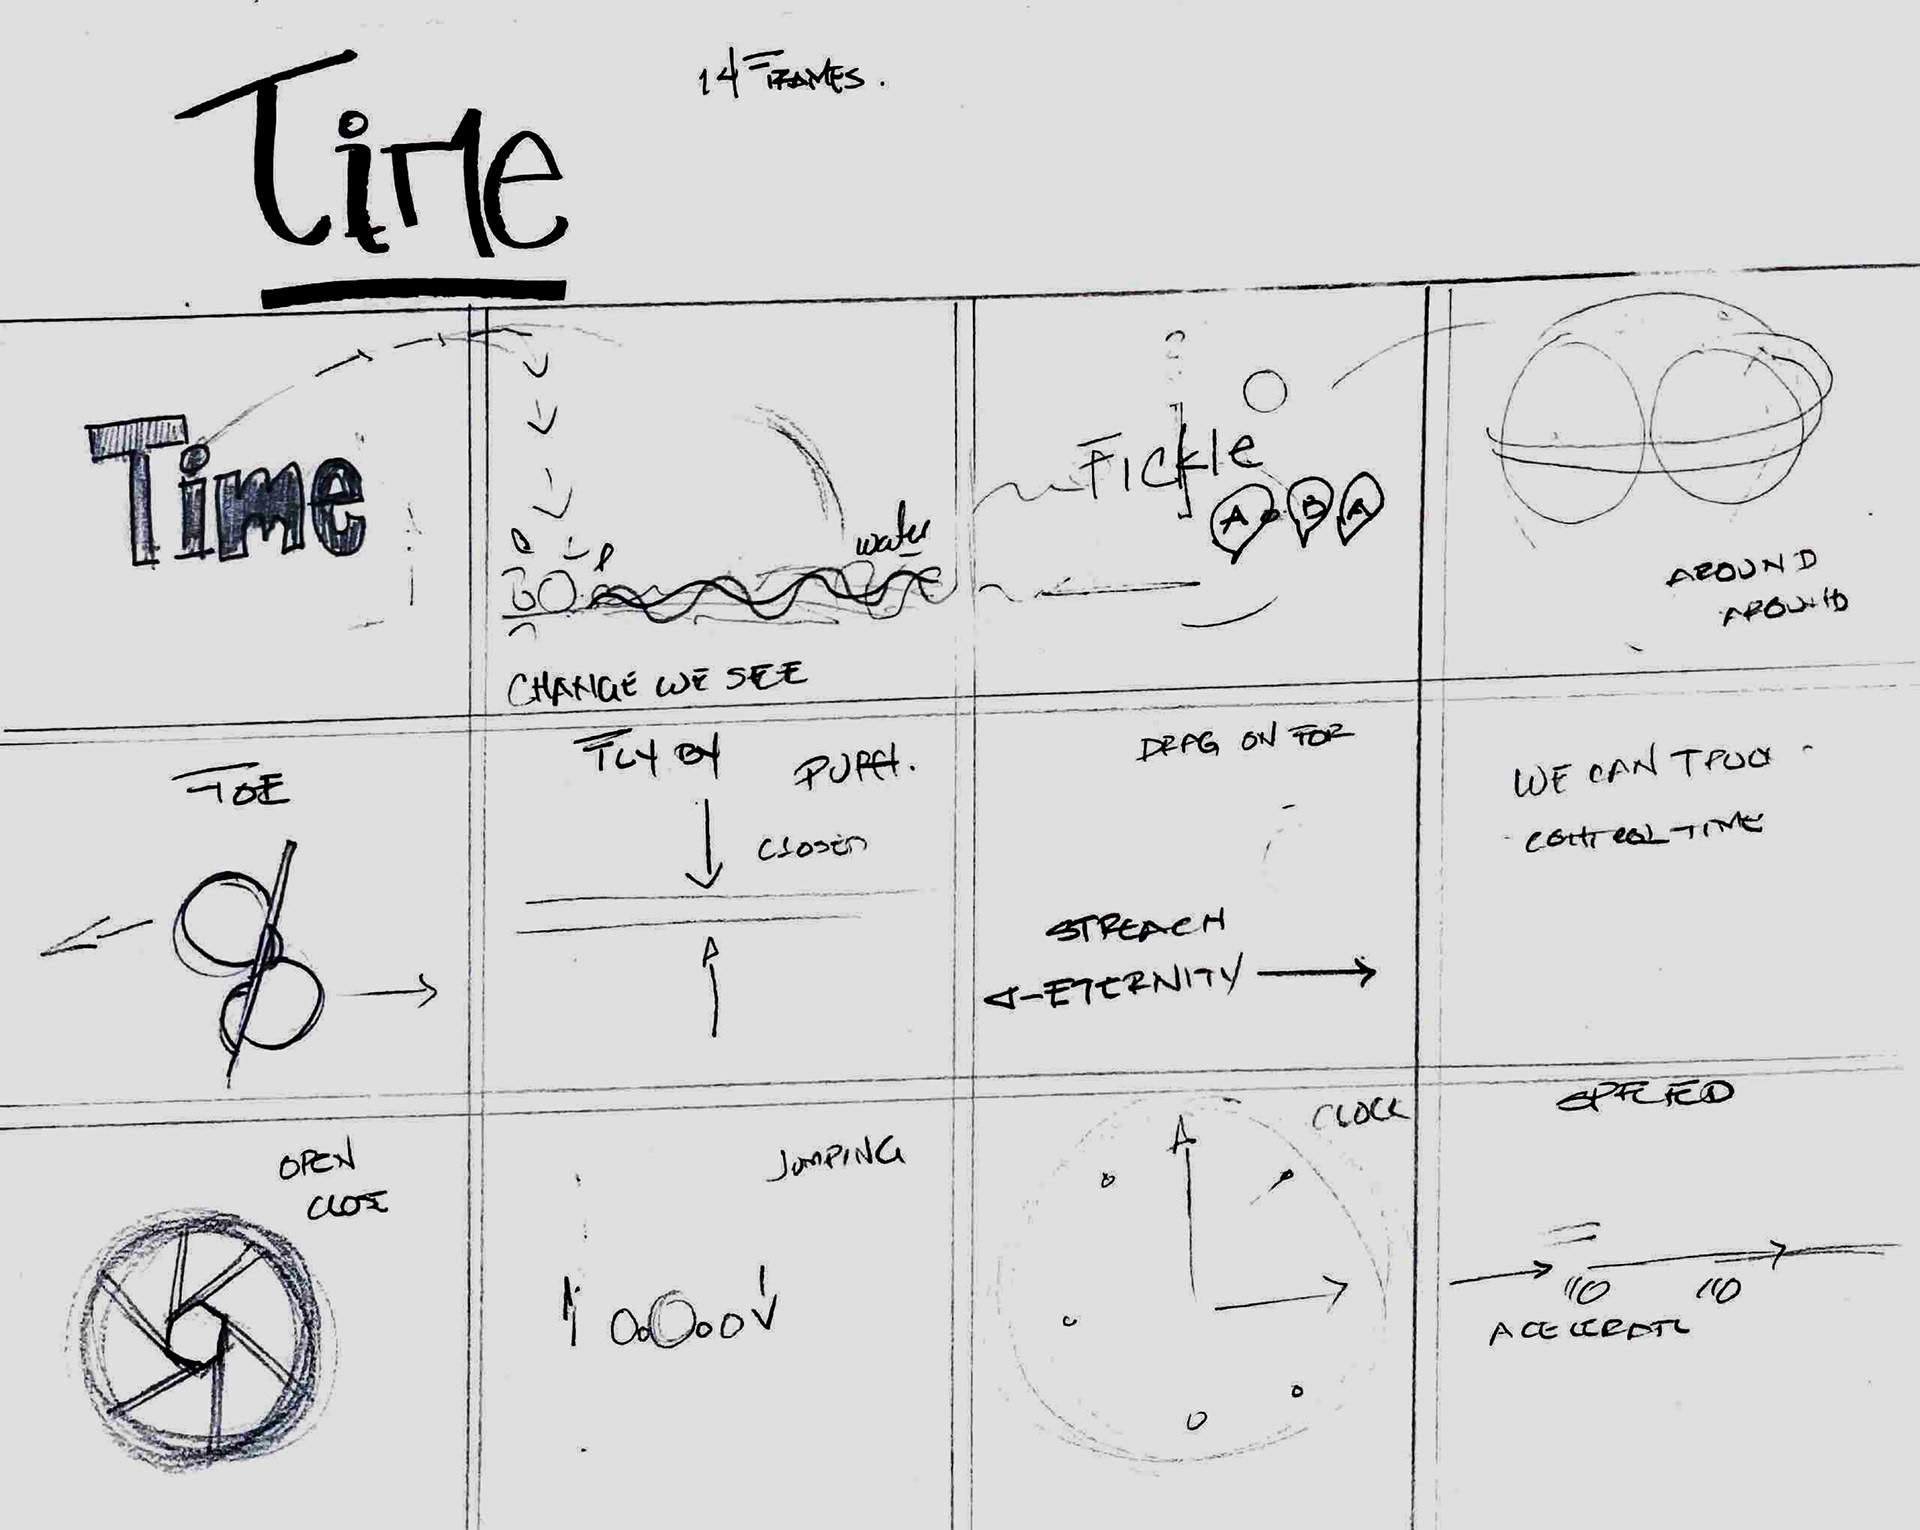 Time
14 FRAMES.
Time
water
CHANGE WE SEE
Fickle
A B A
AROUND
AROUND
FOE
FLY BY
PUSH.
CLOSER
DRAG ON FOR
STREACH
ETERNITY
WE CAN
CONTROL TIME
OPEN
CLOSE
JUMPING
CLOCK
SPEED
ACELERATE